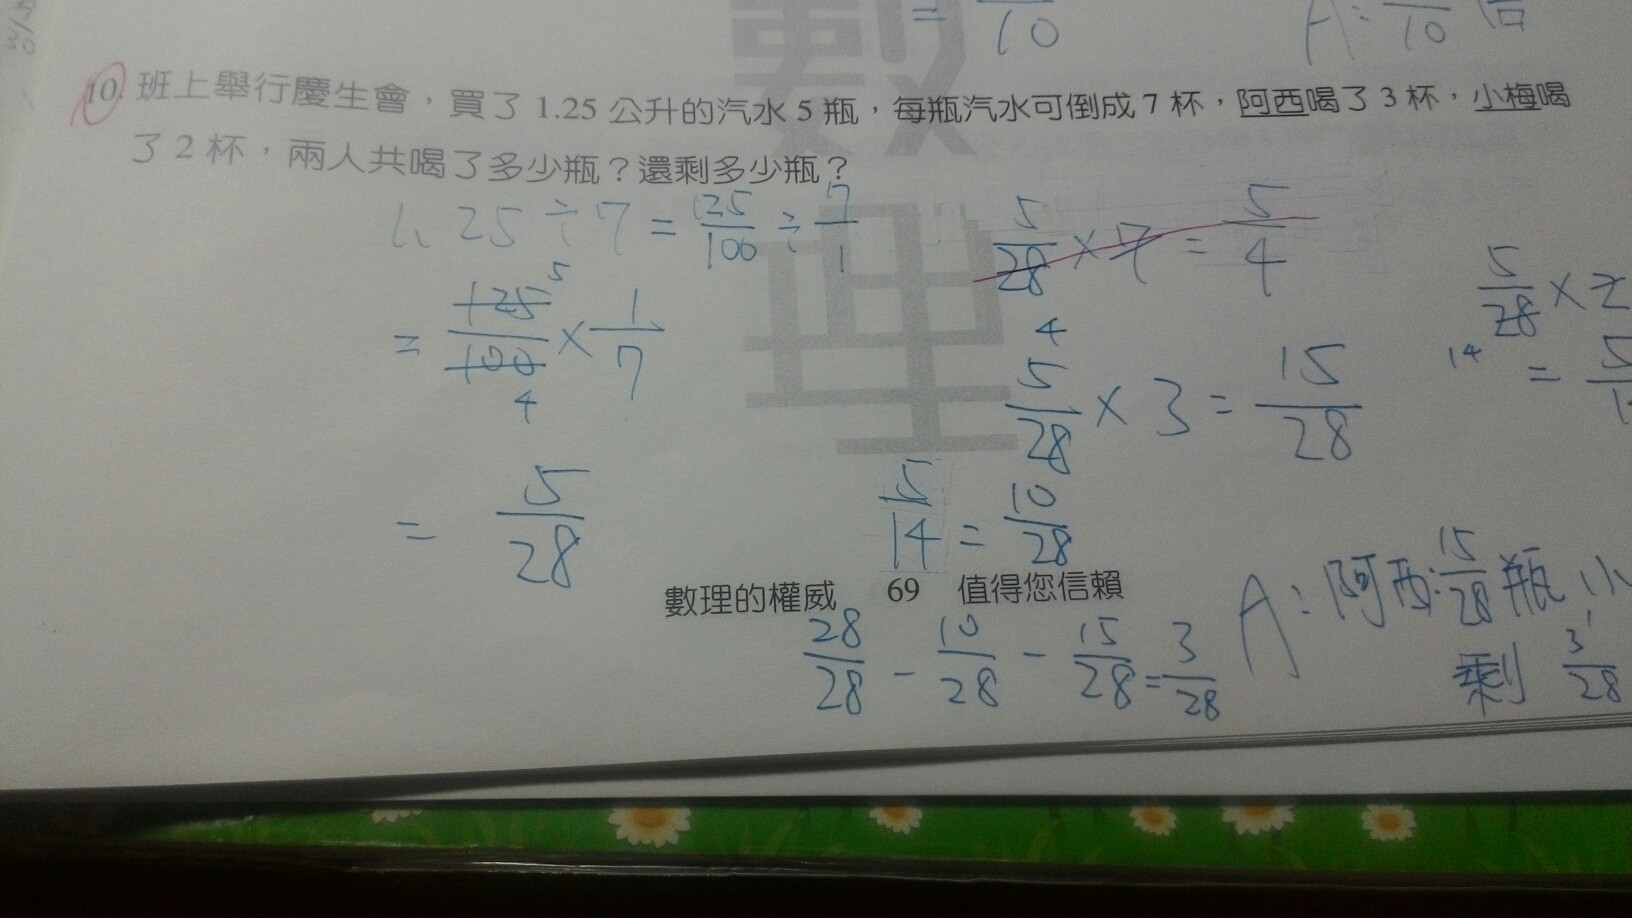 = /10
A: /10 倍
10. 班上舉行慶生會，買了 1.25 公升的汽水 5 瓶，每瓶汽水可倒成 7 杯，阿西喝了 3 杯，小梅喝
了 2 杯，兩人共喝了多少瓶？還剩多少瓶？
1.25 ÷ 7 = 125/100 ÷ 7/1
= 125/100 × 1/7
5
4
= 5/28
5/28 × 7 = 5/4
4
5/28 × 3 = 15/28
5/14 = 10/28
5/28 × 2
14
= 5/1
數理
數理的權威 69 值得您信賴
28/28 - 10/28 - 15/28 = 3/28
A: 阿西: 15/28 瓶, 小
剩 3/28